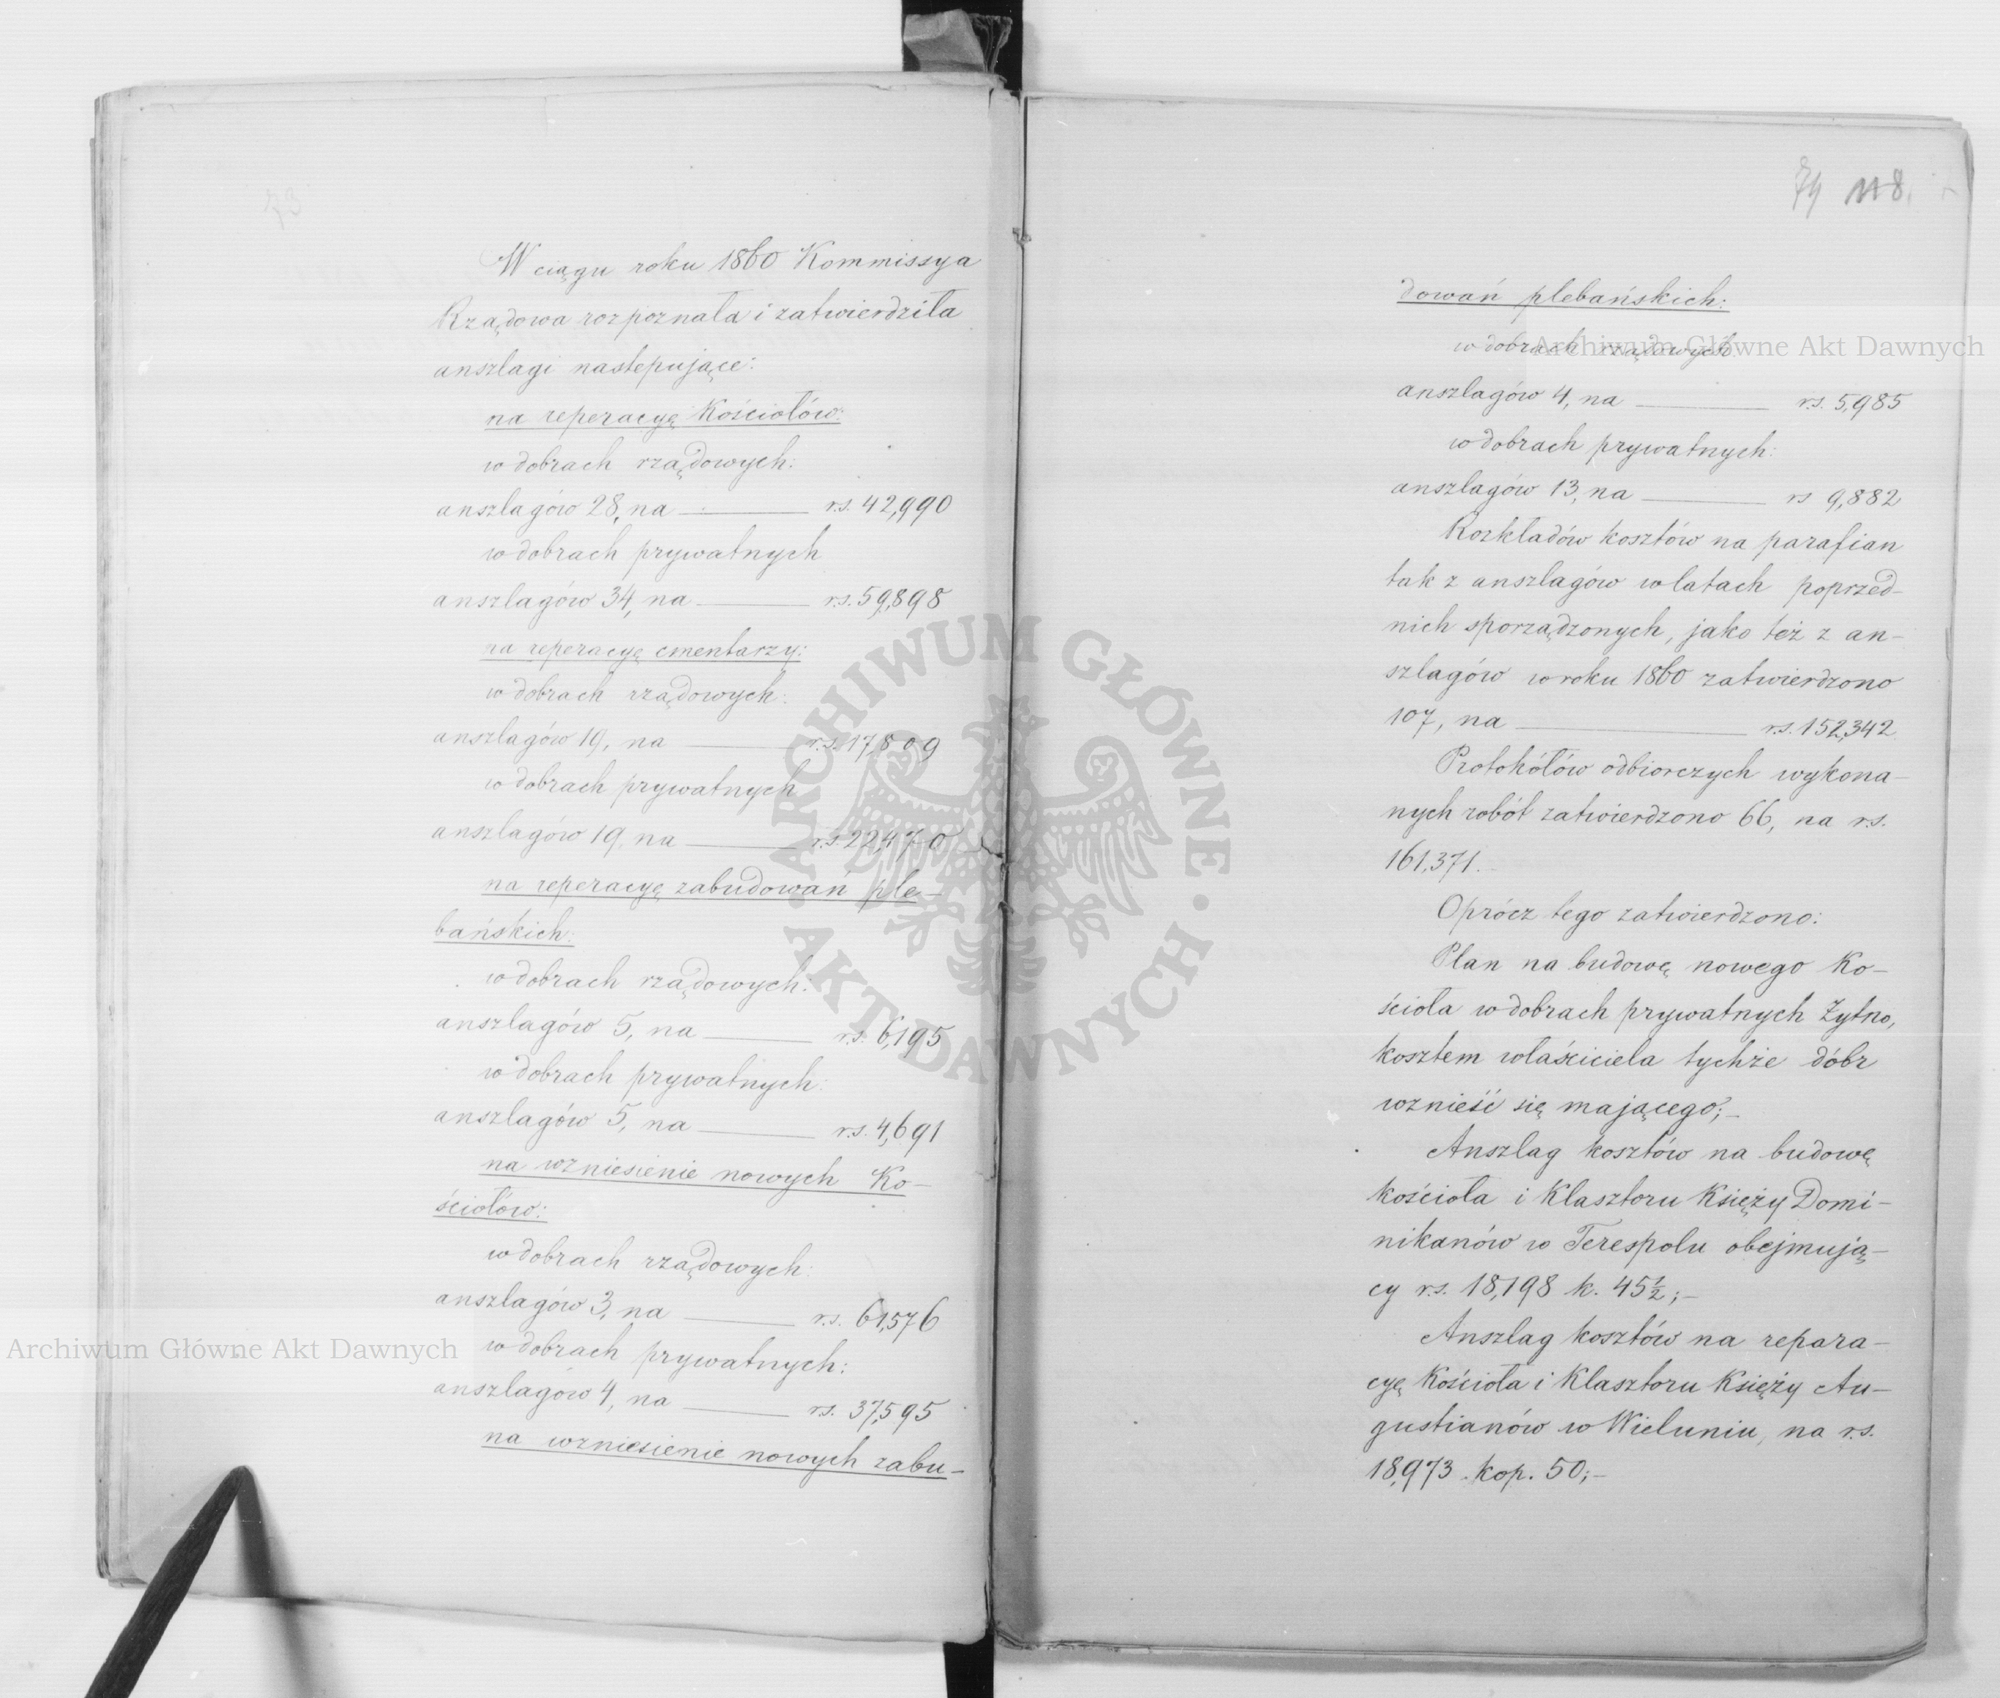 73
W ciągu roku 1860 Kommissya
Rządowa rozpoznała i zatwierdziła
anszlagi nastepujące:
na reperacyę Kościołów:
w dobrach rządowych:
anszlagów 28, na rs. 42,990
w dobrach prywatnych
anszlagów 34, na rs. 59,898
na reperacyę cmentarzy:
w dobrach rządowych:
anszlagów 19, na rs. 17,809
w dobrach prywatnych
anszlagów 19, na rs. 22,470
na reperacyę zabudowań ple-
bańskich:
w dobrach rządowych:
anszlagów 5, na rs. 6,195
w dobrach prywatnych:
anszlagów 5, na rs. 4,691
na wzniesienie nowych Ko-
ściołów:
w dobrach rządowych:
anszlagów 3, na rs. 61,576
w dobrach prywatnych:
anszlagów 4, na rs. 37,595
na wzniesienie nowych zabu-
118.
dowań plebańskich:
w dobrach rządowych
anszlagów 4, na rs. 5,985
w dobrach prywatnych:
anszlagów 13, na rs 9,882
Rozkładów kosztów na parafian
tak z anszlagów w latach poprzed-
nich sporządzonych, jako też z an-
szlagów w roku 1860 zatwierdzono
107, na rs. 152,342
Protokółów odbiorczych wykona-
nych robót zatwierdzono 66, na rs.
161,371.
Oprócz tego zatwierdzono:
Plan na budowę nowego Ko-
ścioła w dobrach prywatnych Żytno,
kosztem właściciela tychże dóbr
wznieść się mającego;-
Anszlag kosztów na budowę
kościoła i Klasztoru Księży Domi-
nikanów w Terespolu obejmują-
cy rs. 18,198 k. 45½;-
Anszlag kosztów na repara-
cyę Kościoła i Klasztoru Księży Au-
gustianów w Wieluniu, na rs.
18,973. kop. 50;-
Archiwum Główne Akt Dawnych
Archiwum Główne Akt Dawnych
ARCHIWUM GŁÓWNE
AKT DAWNYCH